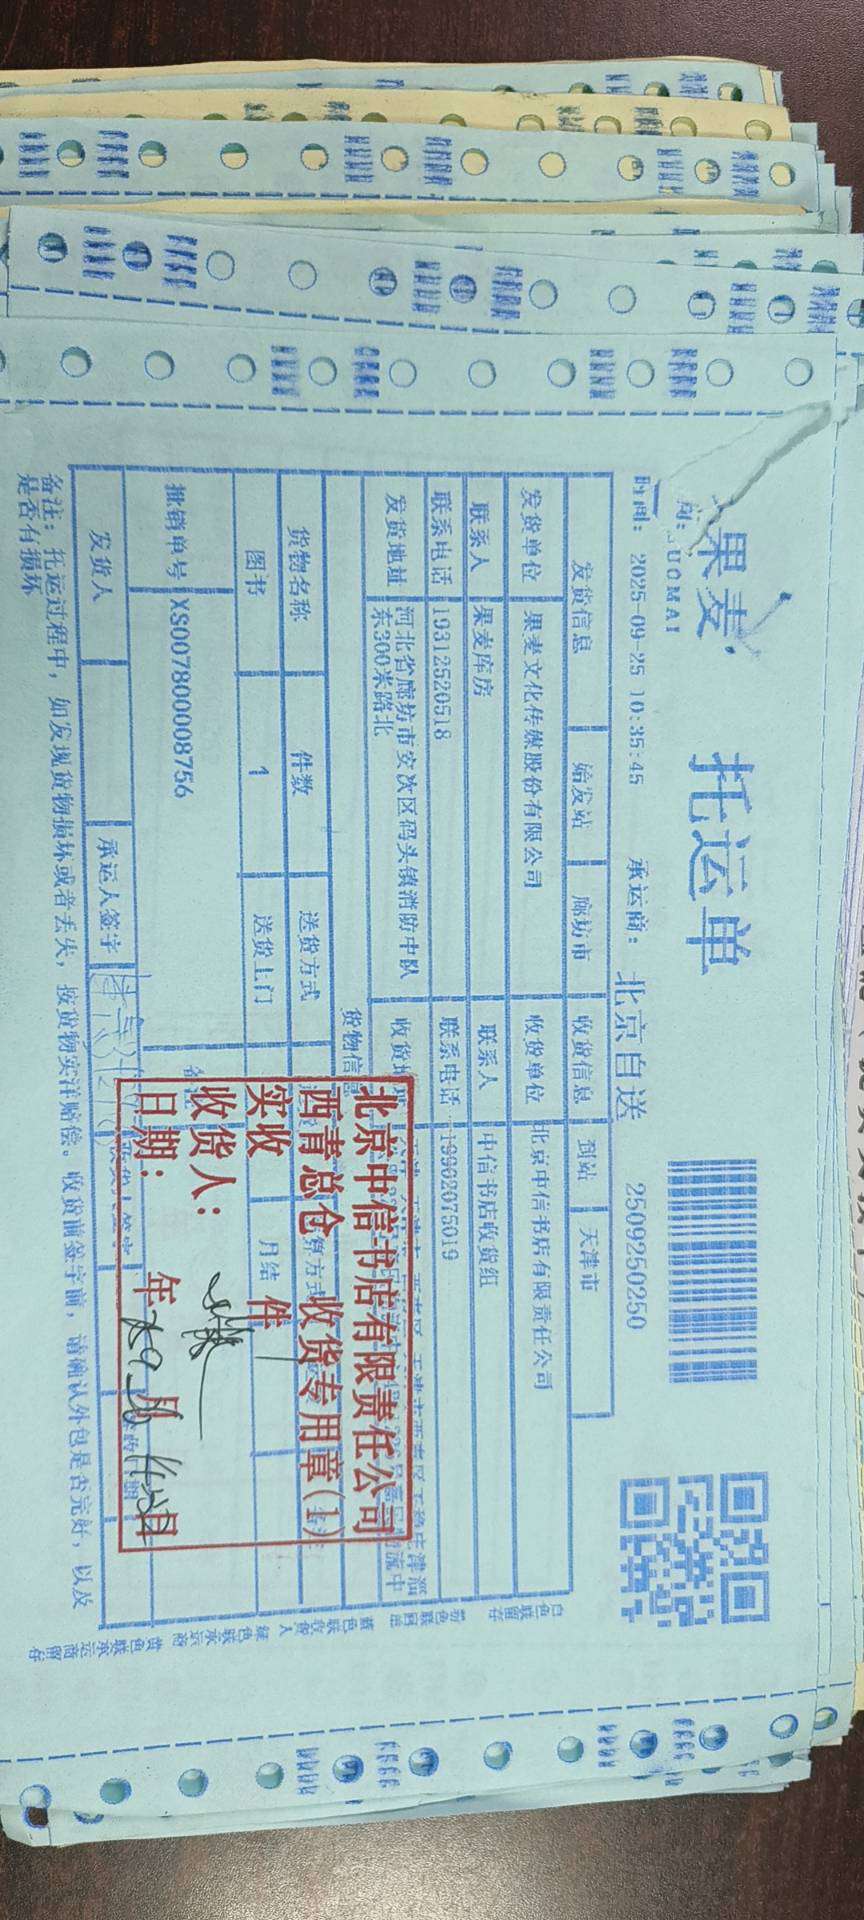 果麦 托运单
GUOMAI
时间: 2025-09-25 10:35:45 承运商: 北京自送 2509250250
发货信息 始发站 廊坊市 收货信息 到站 天津市
发货单位 果麦文化传媒股份有限公司 收货单位 北京中信书店有限责任公司
联系人 果麦库房 联系人 中信书店收货组
联系电话 19312520518 联系电话 19902075019
发货地址 河北省廊坊市安次区码头镇消防中队
东300米路北
货物信息
货物名称 件数 送货方式
图书 1 送货上门 月结
批销单号 XS007800008756
发货人 承运人签字
备注: 托运过程中, 如发现货物损坏或者丢失, 按货物实洋赔偿。收货前签字前, 请确认外包是否完好, 以及
是否有损坏
北京中信书店有限责任公司
西青总仓 收货专用章(1)
实收 件
收货人:
日期: 年 月 日
白色联留存
蓝色联收货人
绿色联承运商
黄色联承运商留存